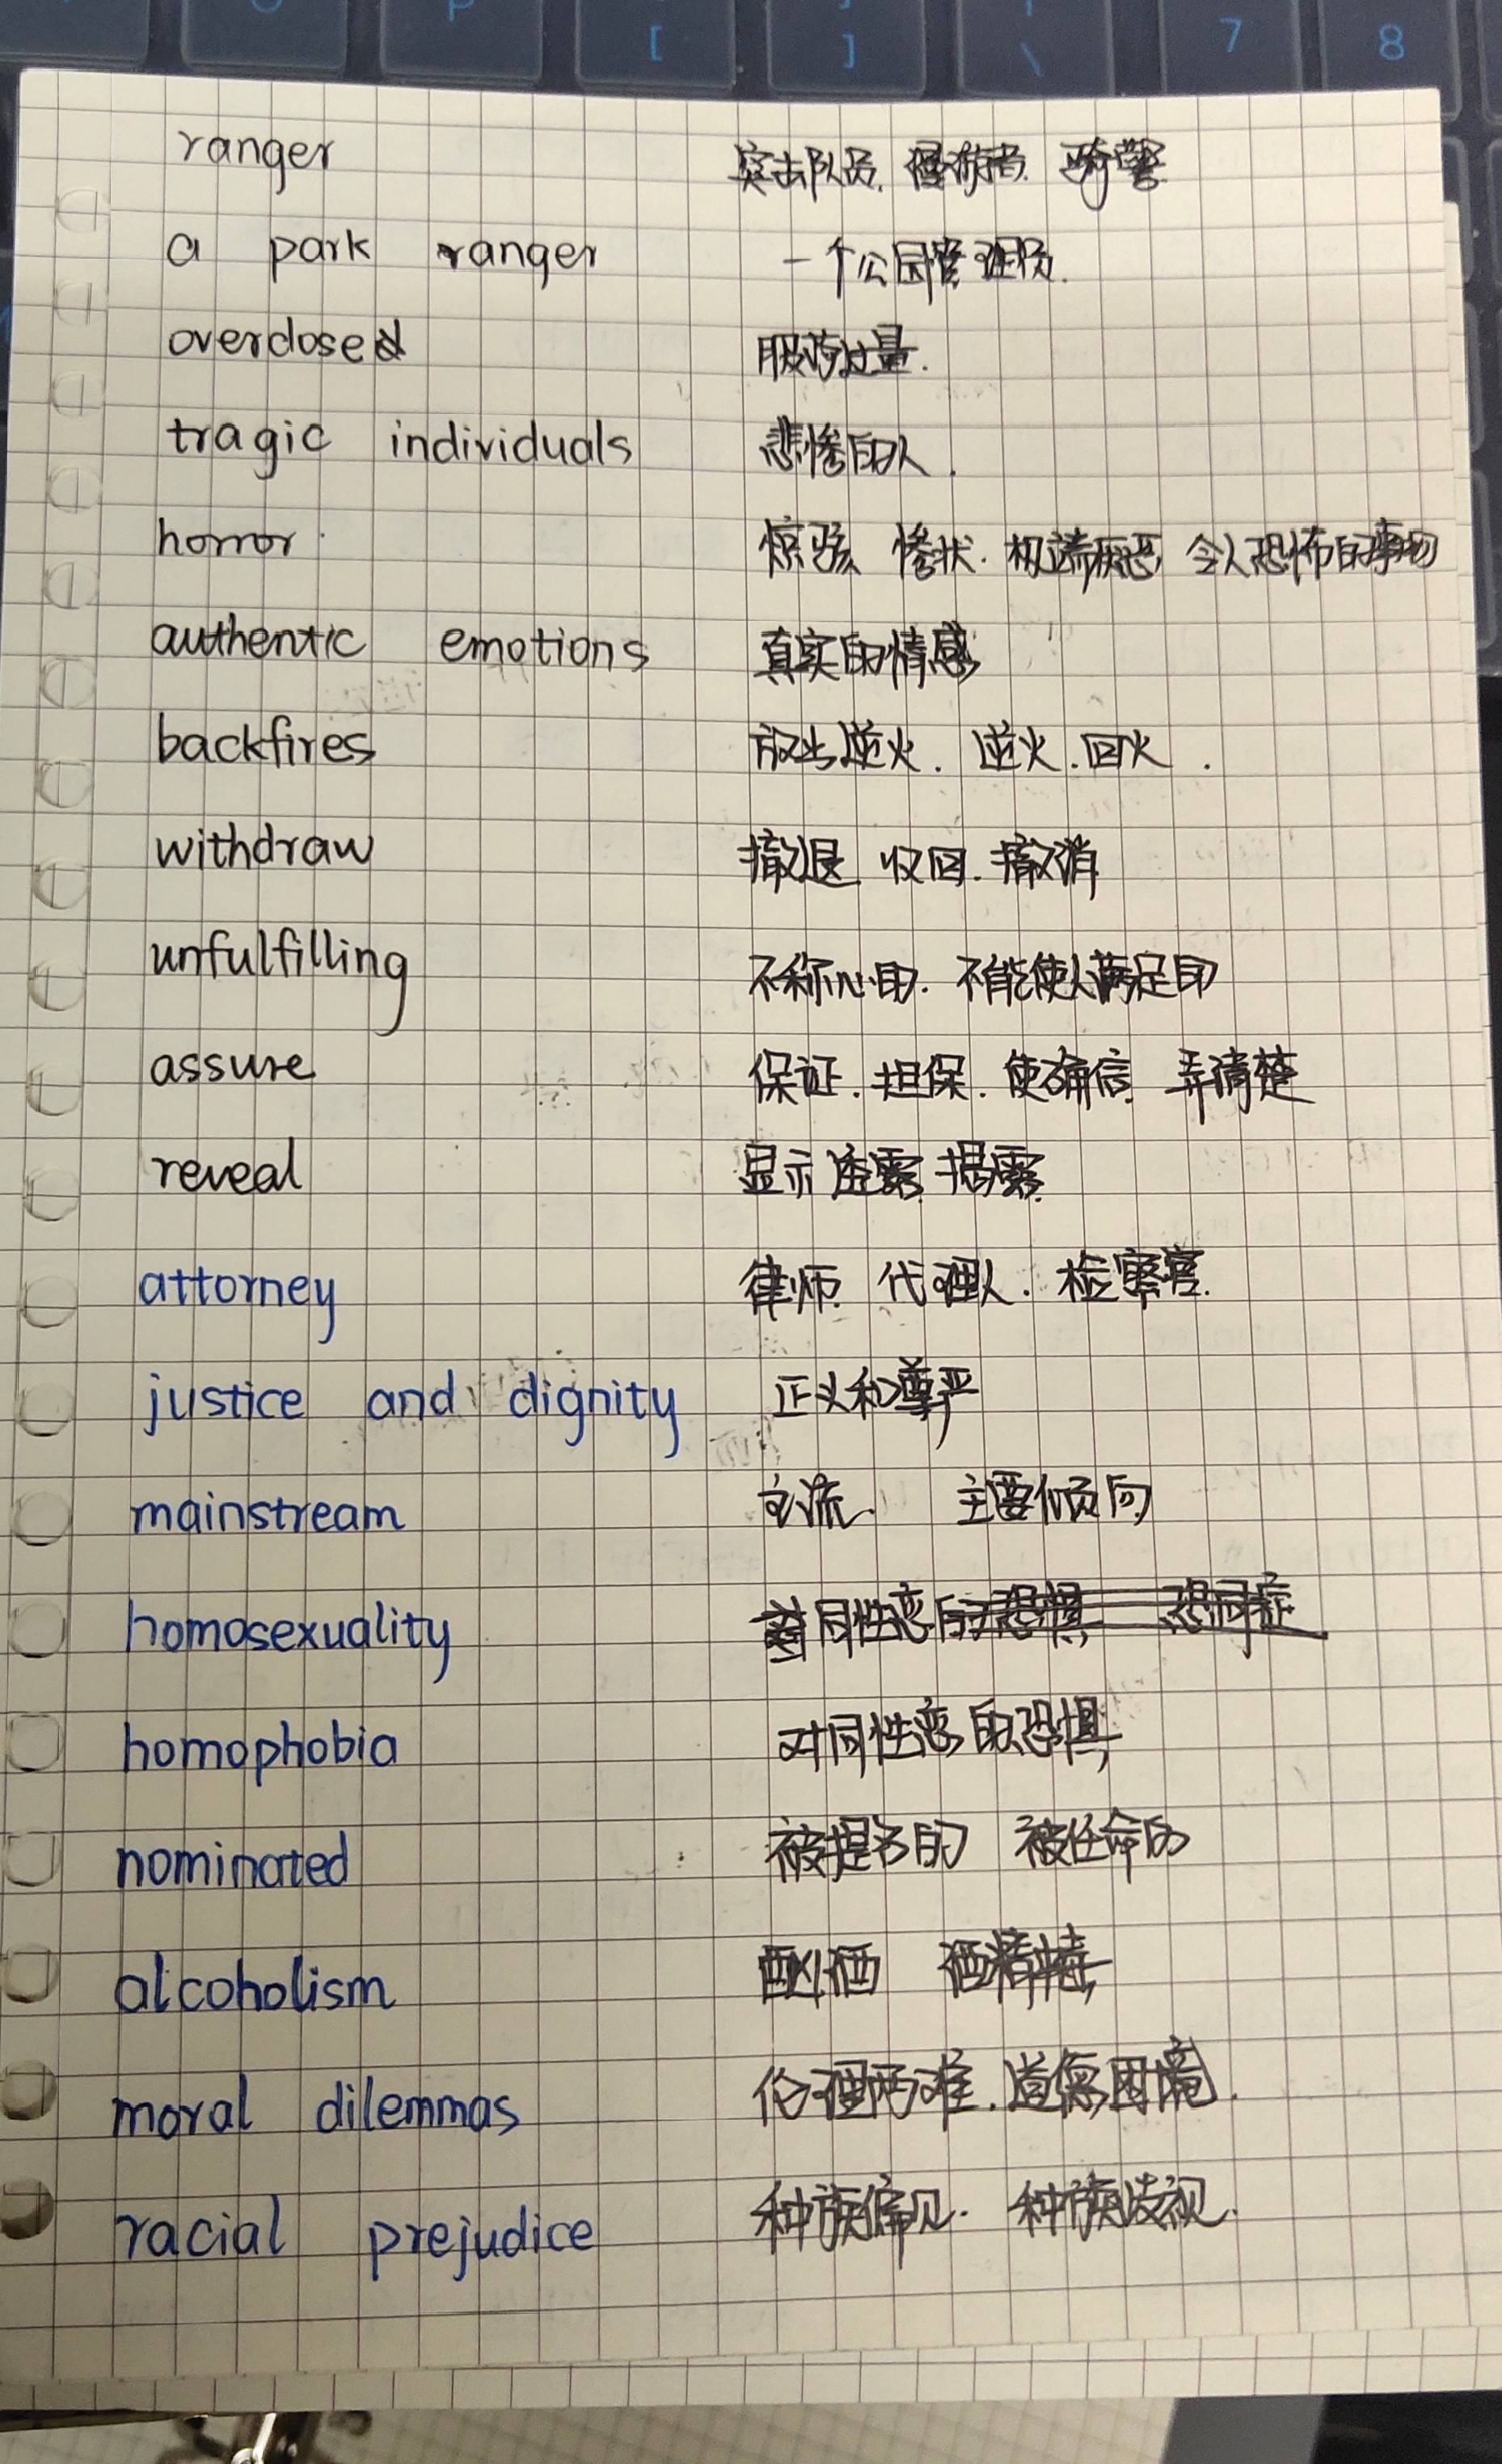 ranger 突击队员. 漫游者. 骑警
a park ranger 一个公园管理员.
overdosed 服药过量.
tragic individuals 悲惨的人.
horror 惊骇 惨状. 极端厌恶 令人恐怖的事物
authentic emotions 真实的情感
backfires 放出逆火. 逆火. 回火.
withdraw 撤退 收回. 撤消
unfulfilling 不称心的. 不能使人满足的
assure 保证. 担保. 使确信 弄清楚
reveal 显示 透露 揭露
attorney 律师. 代理人. 检察官.
justice and dignity 正义和尊严
mainstream 主流. 主要倾向
homosexuality 同性恋
homophobia 对同性恋的恐惧
nominated 被提名的 被任命的
alcoholism 酗酒 酒精中毒
moral dilemmas 伦理两难. 道德困境.
racial prejudice 种族偏见. 种族歧视.